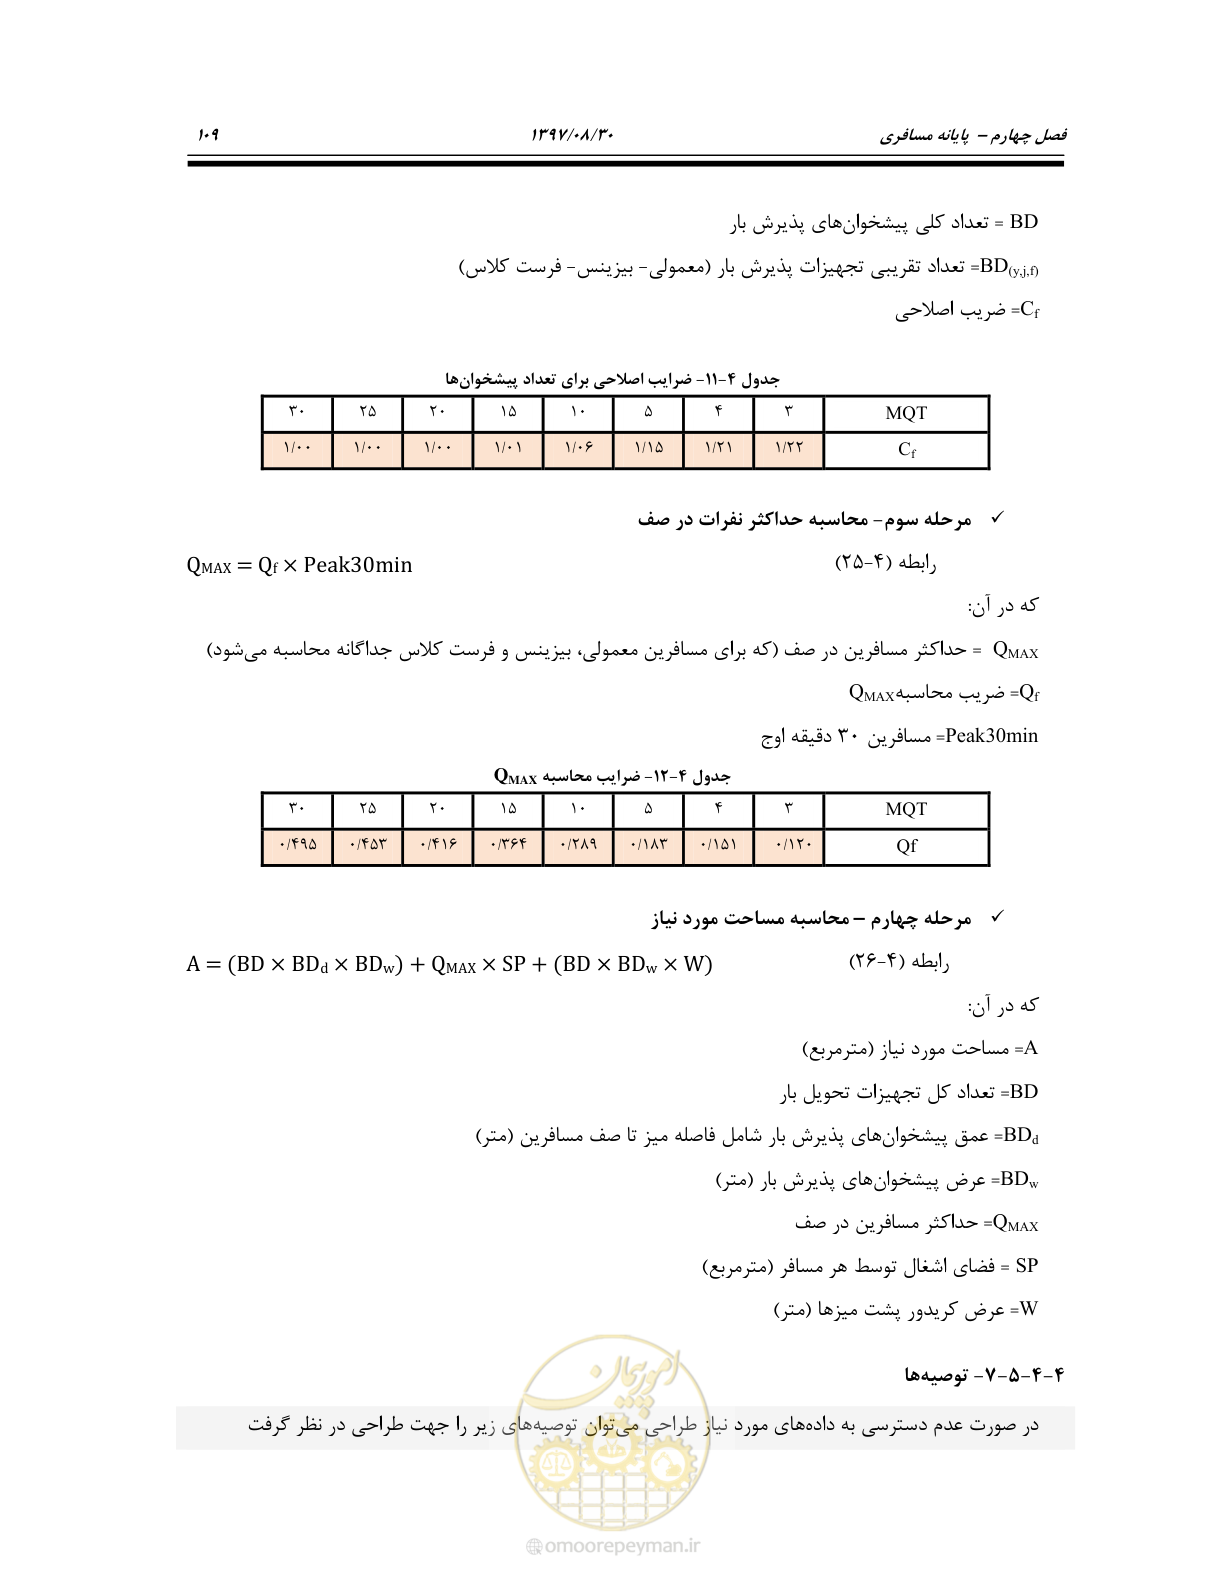 فصل چهارم – پایانه مسافری ۱۳۹۷/۰۸/۳۰ ۱۰۹
BD = تعداد کلی پیشخوان‌های پذیرش بار
BD(y,j,f)= تعداد تقریبی تجهیزات پذیرش بار (معمولی- بیزینس- فرست کلاس)
Cf= ضریب اصلاحی
جدول ۴-۱۱- ضرایب اصلاحی برای تعداد پیشخوان‌ها
MQT ۳ ۴ ۵ ۱۰ ۱۵ ۲۰ ۲۵ ۳۰
Cf ۱/۲۲ ۱/۲۱ ۱/۱۵ ۱/۰۶ ۱/۰۱ ۱/۰۰ ۱/۰۰ ۱/۰۰
✓ مرحله سوم- محاسبه حداکثر نفرات در صف
رابطه (۴-۲۵) QMAX = Qf × Peak30min
که در آن:
QMAX = حداکثر مسافرین در صف (که برای مسافرین معمولی، بیزینس و فرست کلاس جداگانه محاسبه می‌شود)
Qf= ضریب محاسبه QMAX
Peak30min= مسافرین ۳۰ دقیقه اوج
جدول ۴-۱۲- ضرایب محاسبه QMAX
MQT ۳ ۴ ۵ ۱۰ ۱۵ ۲۰ ۲۵ ۳۰
Qf ۰/۱۲۰ ۰/۱۵۱ ۰/۱۸۳ ۰/۲۸۹ ۰/۳۶۴ ۰/۴۱۶ ۰/۴۵۳ ۰/۴۹۵
✓ مرحله چهارم – محاسبه مساحت مورد نیاز
رابطه (۴-۲۶) A = (BD × BDd × BDw) + QMAX × SP + (BD × BDw × W)
که در آن:
A= مساحت مورد نیاز (مترمربع)
BD= تعداد کل تجهیزات تحویل بار
BDd= عمق پیشخوان‌های پذیرش بار شامل فاصله میز تا صف مسافرین (متر)
BDw= عرض پیشخوان‌های پذیرش بار (متر)
QMAX= حداکثر مسافرین در صف
SP = فضای اشغال توسط هر مسافر (مترمربع)
W= عرض کریدور پشت میزها (متر)
۴-۴-۵-۷- توصیه‌ها
در صورت عدم دسترسی به داده‌های مورد نیاز طراحی می‌توان توصیه‌های زیر را جهت طراحی در نظر گرفت
امور پیمان
@omoorepeyman.ir